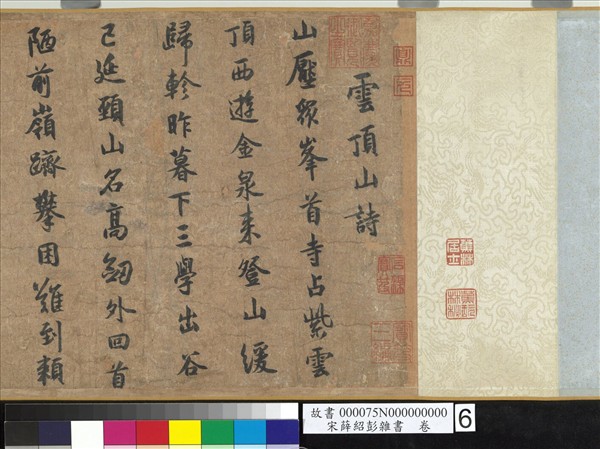 雲頂山詩
山壓眾峯首寺占紫雲
頂西遊金泉來登山緩
歸軫昨暮下三學出谷
已延頸山名高劒外回首
陋前嶺躋攀困難到賴
故書 000075N000000000
宋薛紹彭雜書 卷
6